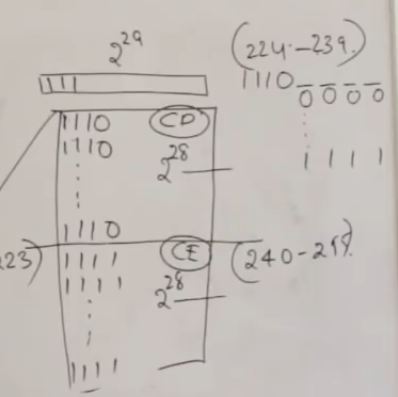 2^29
(224-239)
1110 _ _ _ _
0 0 0 0
1 1 1 1
1110 CD
1110
2^28
1110
223)
1111 CE
(240-255)
1111
2^28
1111